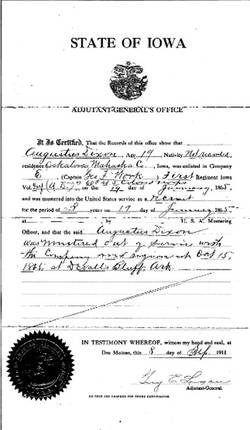 STATE OF IOWA
ADJUTANT-GENERAL'S OFFICE
It Is Certified, That the Records of this office show that
Augustus Dixon, Age 19, Nativity Not recorded
residence Oskaloosa Mahaska Co, Iowa, was enlisted in Company
E, (Captain Geo F. Wook), First Regiment Iowa
on the 17 day of January, 1865
and was mustered into the United States service as recruit
for the period of years on 17 January 1865
U. S. A. Mustering
Officer, and that the said Augustus Dixon
was mustered out of service with
the Company and regiment on Oct 15,
1865, at Devalls Bluff, Ark.
IN TESTIMONY WHEREOF, witness my hand and seal, at
Des Moines, this 8 day of
Guy E. Logan
Adjutant-General.